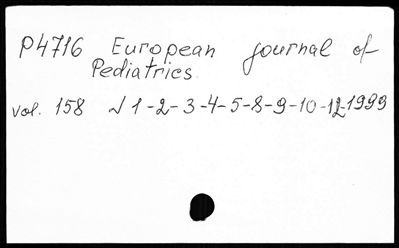 P4716 European journal of
Pediatrics
vol. 158 √ 1-2-3-4-5-8-9-10-12-1999